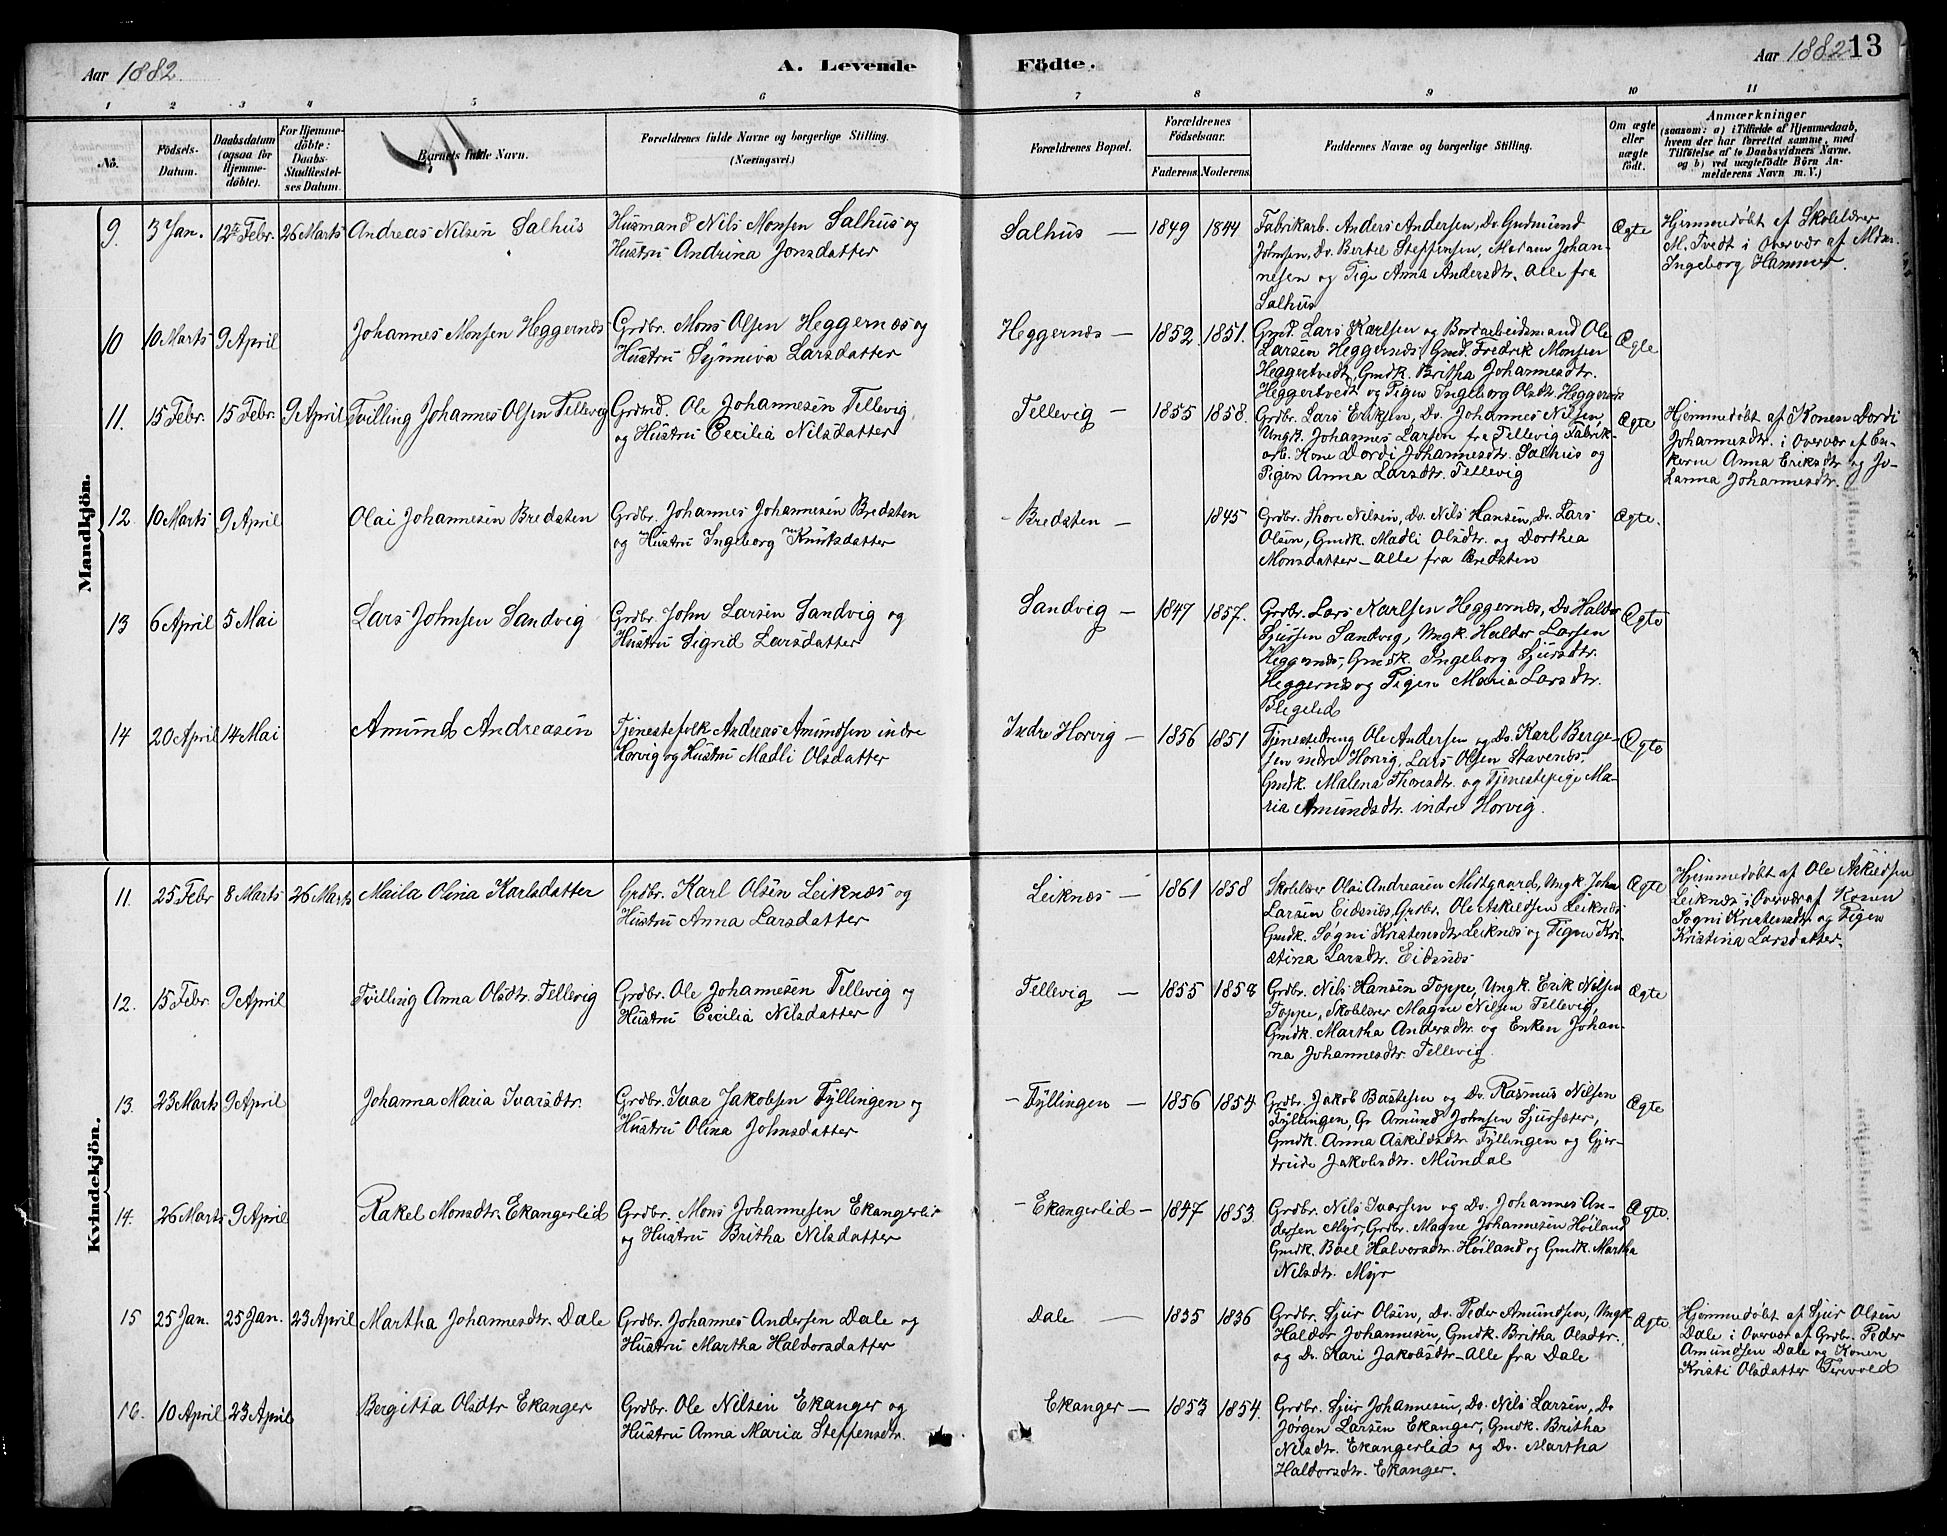 Aar 1882. A. Levende Födte. Aar 1882 13
1 2 3 4 5 6 7 8 9 10 11
No. Födsels-Datum. Daabsdatum (ogsaa for Hjemmedöbte). For Hjemmedöbte: Daabs-Stadfæstelses Datum. Barnets fulde Navn. Forældrenes fulde Navne og borgerlige Stilling. (Næringsvei.) Forældrenes Bopæl. Forældrenes Födselsaar. Faderens. Moderens. Faddernes Navne og borgerlige Stilling. Om ægte eller uægte födt. Anmærkninger (saasom: a) i Tilfælde af Hjemmedaab, hvem der har forrettet samme, med Tilföielse af to Daabsvidners Navne, og b) ved uægtefödte Börn Anmelderens Navn m. V.)
Mandkjön.
9. 3 Jan. 12te Febr. 26 Marts Andreas Nilsen Salhus
Husmand Nils Monsen Salhus og
Hustru Andrina Jonsdatter
Salhus — 1849 1844
Fabrikarb. Anders Andersen, Do. Gudmund
Johnsen, Do. Bertel Steffensen, Madam Johan-
nesen og Pige Anna Andersdtr. Alle fra
Salhus
Ægte
Hjemmedøbt af Skolelærer
M. Tvedt i Overvær af Mdm.
Ingeborg Hammer.
10 10 Marts 9 April Johannes Monsen Heggernæs
Grdbr. Mons Olsen Heggernæs og
Hustru Synniva Larsdatter
Heggernæs — 1852 1851.
Gmd. Lars Karlsen og Bordarbeidsmand Ole
Larsen Heggernæs, Gmd. Fredrik Monsen
Heggertvedt, Gmdk. Britha Johannesdtr.
Heggertvedt og Pigen Ingeborg Olsdtr. Heggernæs
Ægte
11. 15 Febr. 15 Febr. 9 April Tvilling Johannes Olsen Tellevig
Grdmd. Ole Johannesen Tellevig,
og Hustru Cecilia Nilsdatter
Tellevig — 1855 1858.
Grdbr. Lars Eriksen, Do. Johannes Nilsen,
Ungk. Johannes Larsen fra Tellevig Fabrik-
arb. Kone Dordi Johannesdtr. Salhus og
Pigen Anna Larsdtr. Tellevig
Ægte
Hjemmedøbt af Konen Dordi
Johannesdtr. i Overvær af En-
kerne Anna Eriksdtr og Jo-
hanna Johannesdtr.
12. 10 Marts 9 April Olai Johannesen Bredsten
Grdbr. Johannes Johannesen Bredsten
og Hustru Ingeborg Knutsdatter
- Bredsten — 1845
Grdbr. Thore Nilsen, Do. Nils Hansen, Do. Lars
Olsen, Gmdk. Madli Olsdtr. og Dorthea
Monsdatter — alle fra Bredsten
Ægte.
13 6 April 5 Mai Lars Johnsen Sandvig
Grdbr. John Larsen Sandvig og
Hustru Sigrid Larsdatter
Sandvig — 1847 1857.
Grdbr. Lars Karlsen Heggernæs, Do Haldor
Sjursen Sandvig, Ungk. Haldor Larsen
Heggernæs, Gmdk. Ingeborg Sjursdtr.
Heggernæs og Pigen Maria Larsdtr.
Flegeled
Ægte
14 20 April 14 Mai Amund Andreasen
Tjenestefolk Andreas Amundsen indre
Horvig og Hustru Madli Olsdatter
Indre Horvig — 1856 1851
Tjenestedreng Ole Andersen og Do. Karl Berge-
sen indre Horvig, Lars Olsen Stavenæs,
Gmdk. Malena Thoresdtr. og Tjenestepige Ma-
ria Amundsdtr. indre Horvig.
Ægte
Kvindekjön.
11. 25 Febr 8 Marts 26 Marts Maila Olina Karlsdatter
Grdbr. Karl Olsen Leiknæs og
Hustru Anna Larsdatter
Leiknæs — 1861 1858
Skolelær Olai Andreasen Midtgaard, Ungk. John
Larsen Eidsnæs, Grdbr. Ole Askildsen Leiknæs
Gmdk. Søgni Kristensdtr Leiknæs og Pigen Kri-
stina Larsdtr. Eidsnæs
Ægte
Hjemmedøbt af Ole Askildsen
Leiknæs i Overvær af Konen
Søgni Kristensdtr og Pigen
Kristina Larsdatter.
12. 15 Febr 9 April Tvilling Anna Olsdtr. Tellevig
Grdbr. Ole Johannesen Tellevig og
Hustru Cecilia Nilsdatter
Tellevig — 1855 1858
Grdbr. Nils Hansen Toppe, Ungk. Erik Nilsen
Toppe, Skolelærer Magne Nilsen Tellevig,
Gmdk. Martha Andersdtr. og Enken Johan-
na Johannesdtr. Tellevig.
Ægte
13. 23 Marts 9 April Johanna Maria Ivarsdtr.
Grdbr. Ivar Jakobsen Fyllingen og
Hustru Olina Johnsdatter
- Fyllingen — 1856 1854
Grdbr. Jakob Bastesen og Do. Rasmus Nilsen
Fyllingen, Gr. Amund Johnsen Sjursæter,
Gmdk. Anna Askildsdtr Fyllingen og Gjer-
trude Jakobsdtr. Mundal
Ægte
14. 26 Marts 9 April Rakel Monsdtr. Ekangerlid
Grdbr. Mons Johannesen Ekangerlid
og Hustru Britha Nilsdatter
- Ekangerlid — 1847 1853
Grdbr. Nils Ivarsen og Do. Johannes An-
dersen Myr, Grdbr. Magne Johannesen Høiland
Gmdk. Boel Halvorsdtr. Høiland og Gmdk. Martha
Nilsdtr. Myr
Ægte.
15 25 Jan. 25 Jan. 23 April Martha Johannesdtr. Dale
Grdbr. Johannes Andersen Dale og
Hustru Martha Haldorsdatter
Dale — 1835 1836
Grdbr. Sjur Olsen, Do. Peder Amundsen, Ungk.
Haldor Johannesen, Gmdk. Britha Olsdtr.
og Do. Kari Jakobsdtr — Alle fra Dale
Ægte
Hjemmedøbt af Sjur Olsen
Dale i Overvær af Grdbr. Peder
Amundsen Dale og Konen
Kristi Olsdatter Tervold
16. 10 April 23 April Bergitta Olsdtr Ekanger
Grdbr. Ole Nilsen Ekanger og
Hustru Anna Maria Steffensdtr.
Ekanger — 1853 1854.
Grdbr. Sjur Johannesen, Do. Nils Larsen, Do
Jørgen Larsen Ekanger, Gmdk. Britha
Nilsdtr. Ekangerlid og Do. Martha
Haldorsdtr. Ekanger.